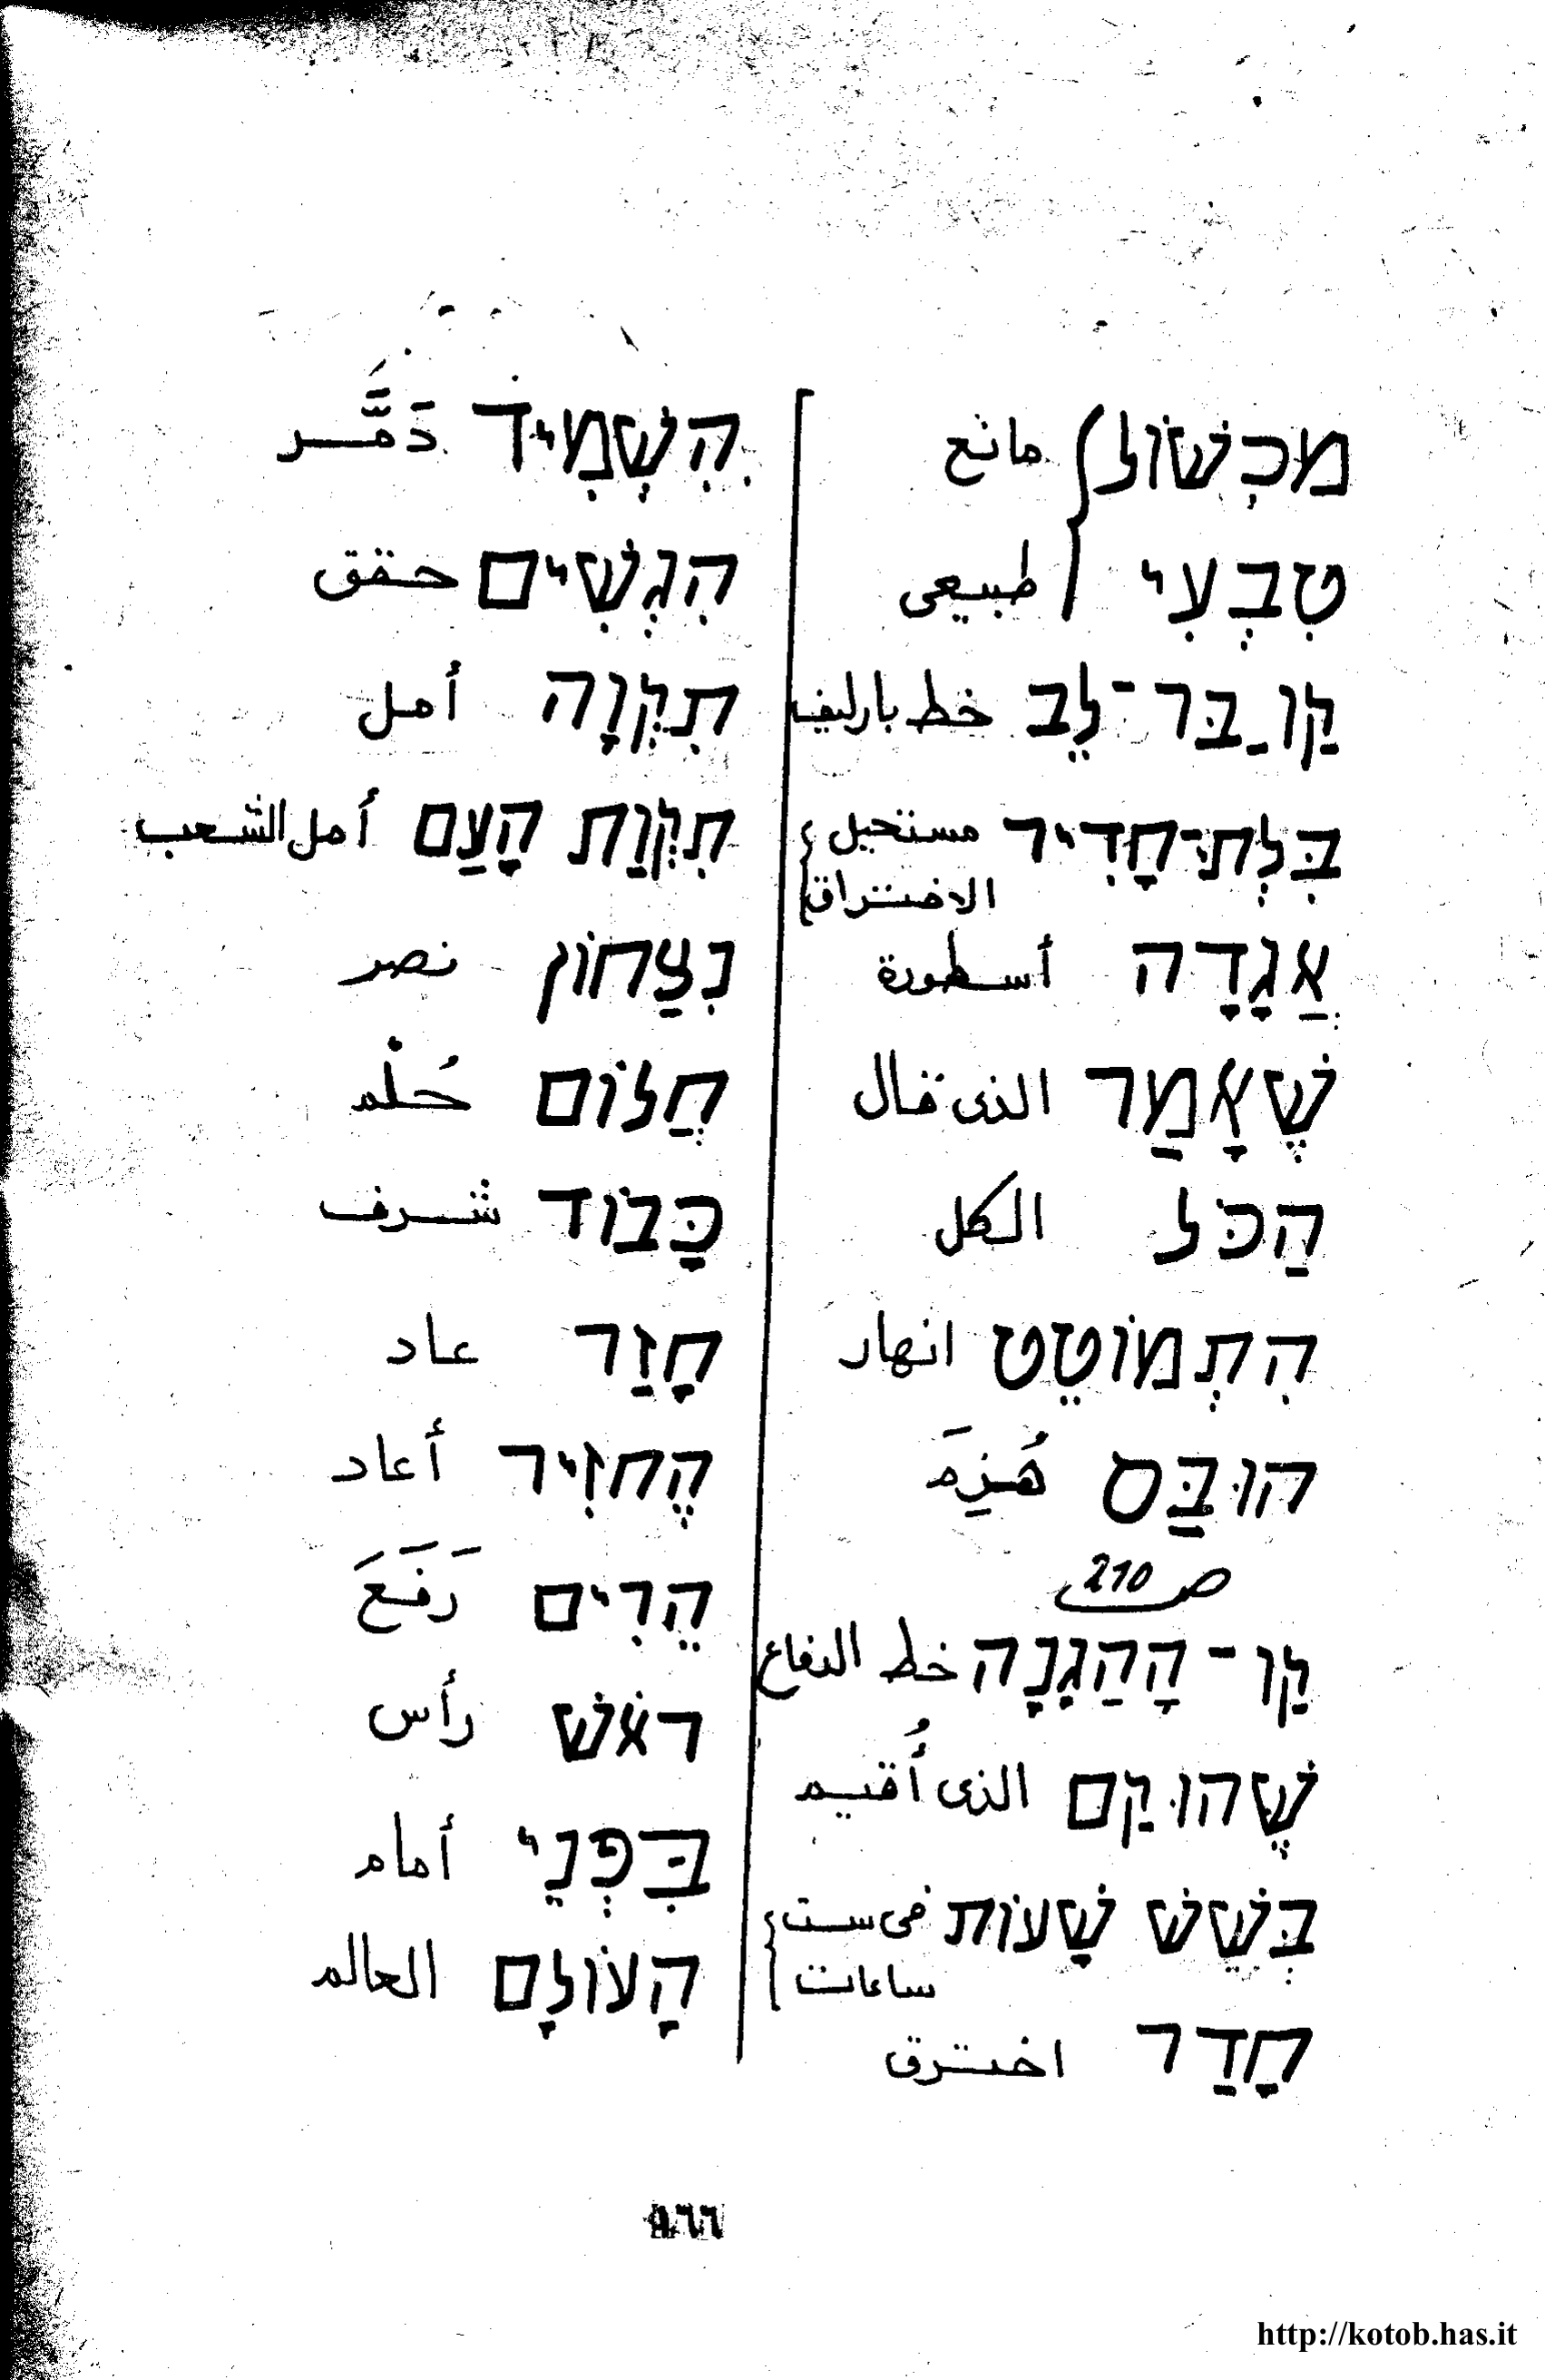 מִכְשׁוֹל מانع
טִבְעִי طبيعى
קַו בַּר-לֵב خط بارليف
בִּלְתִּי-חָדִיר مستحيل
الاختراق
אֲגָדָה أسطورة
שֶׁאָמַר الذى قال
הַכֹּל الكل
הִתְמוֹטֵט انهار
הוּבַּס هُزِمَ
ص 210
קַו - הָהַגָנָה خط الدفاع
שֶׁהוּקַם الذى أُقيم
בְּשֵׁשׁ שָׁעוֹת فى ست
ساعات
חָדַר اخترق
הִשְׁמִיד دَمَّـر
הִגְשִׁים حقق
תִקְוָה أمل
תִקְוַת הָעַם أمل الشعب
נִצַחוֹן نصر
חֲלוֹם حُلْم
כָּבוֹד شرف
חָזַר عاد
הֶחזִיר أعاد
הֵרִים رَفَعَ
ראֹשׁ رأس
בִּפְנֵי أمام
הָעוֹלָם العالم
http://kotob.has.it